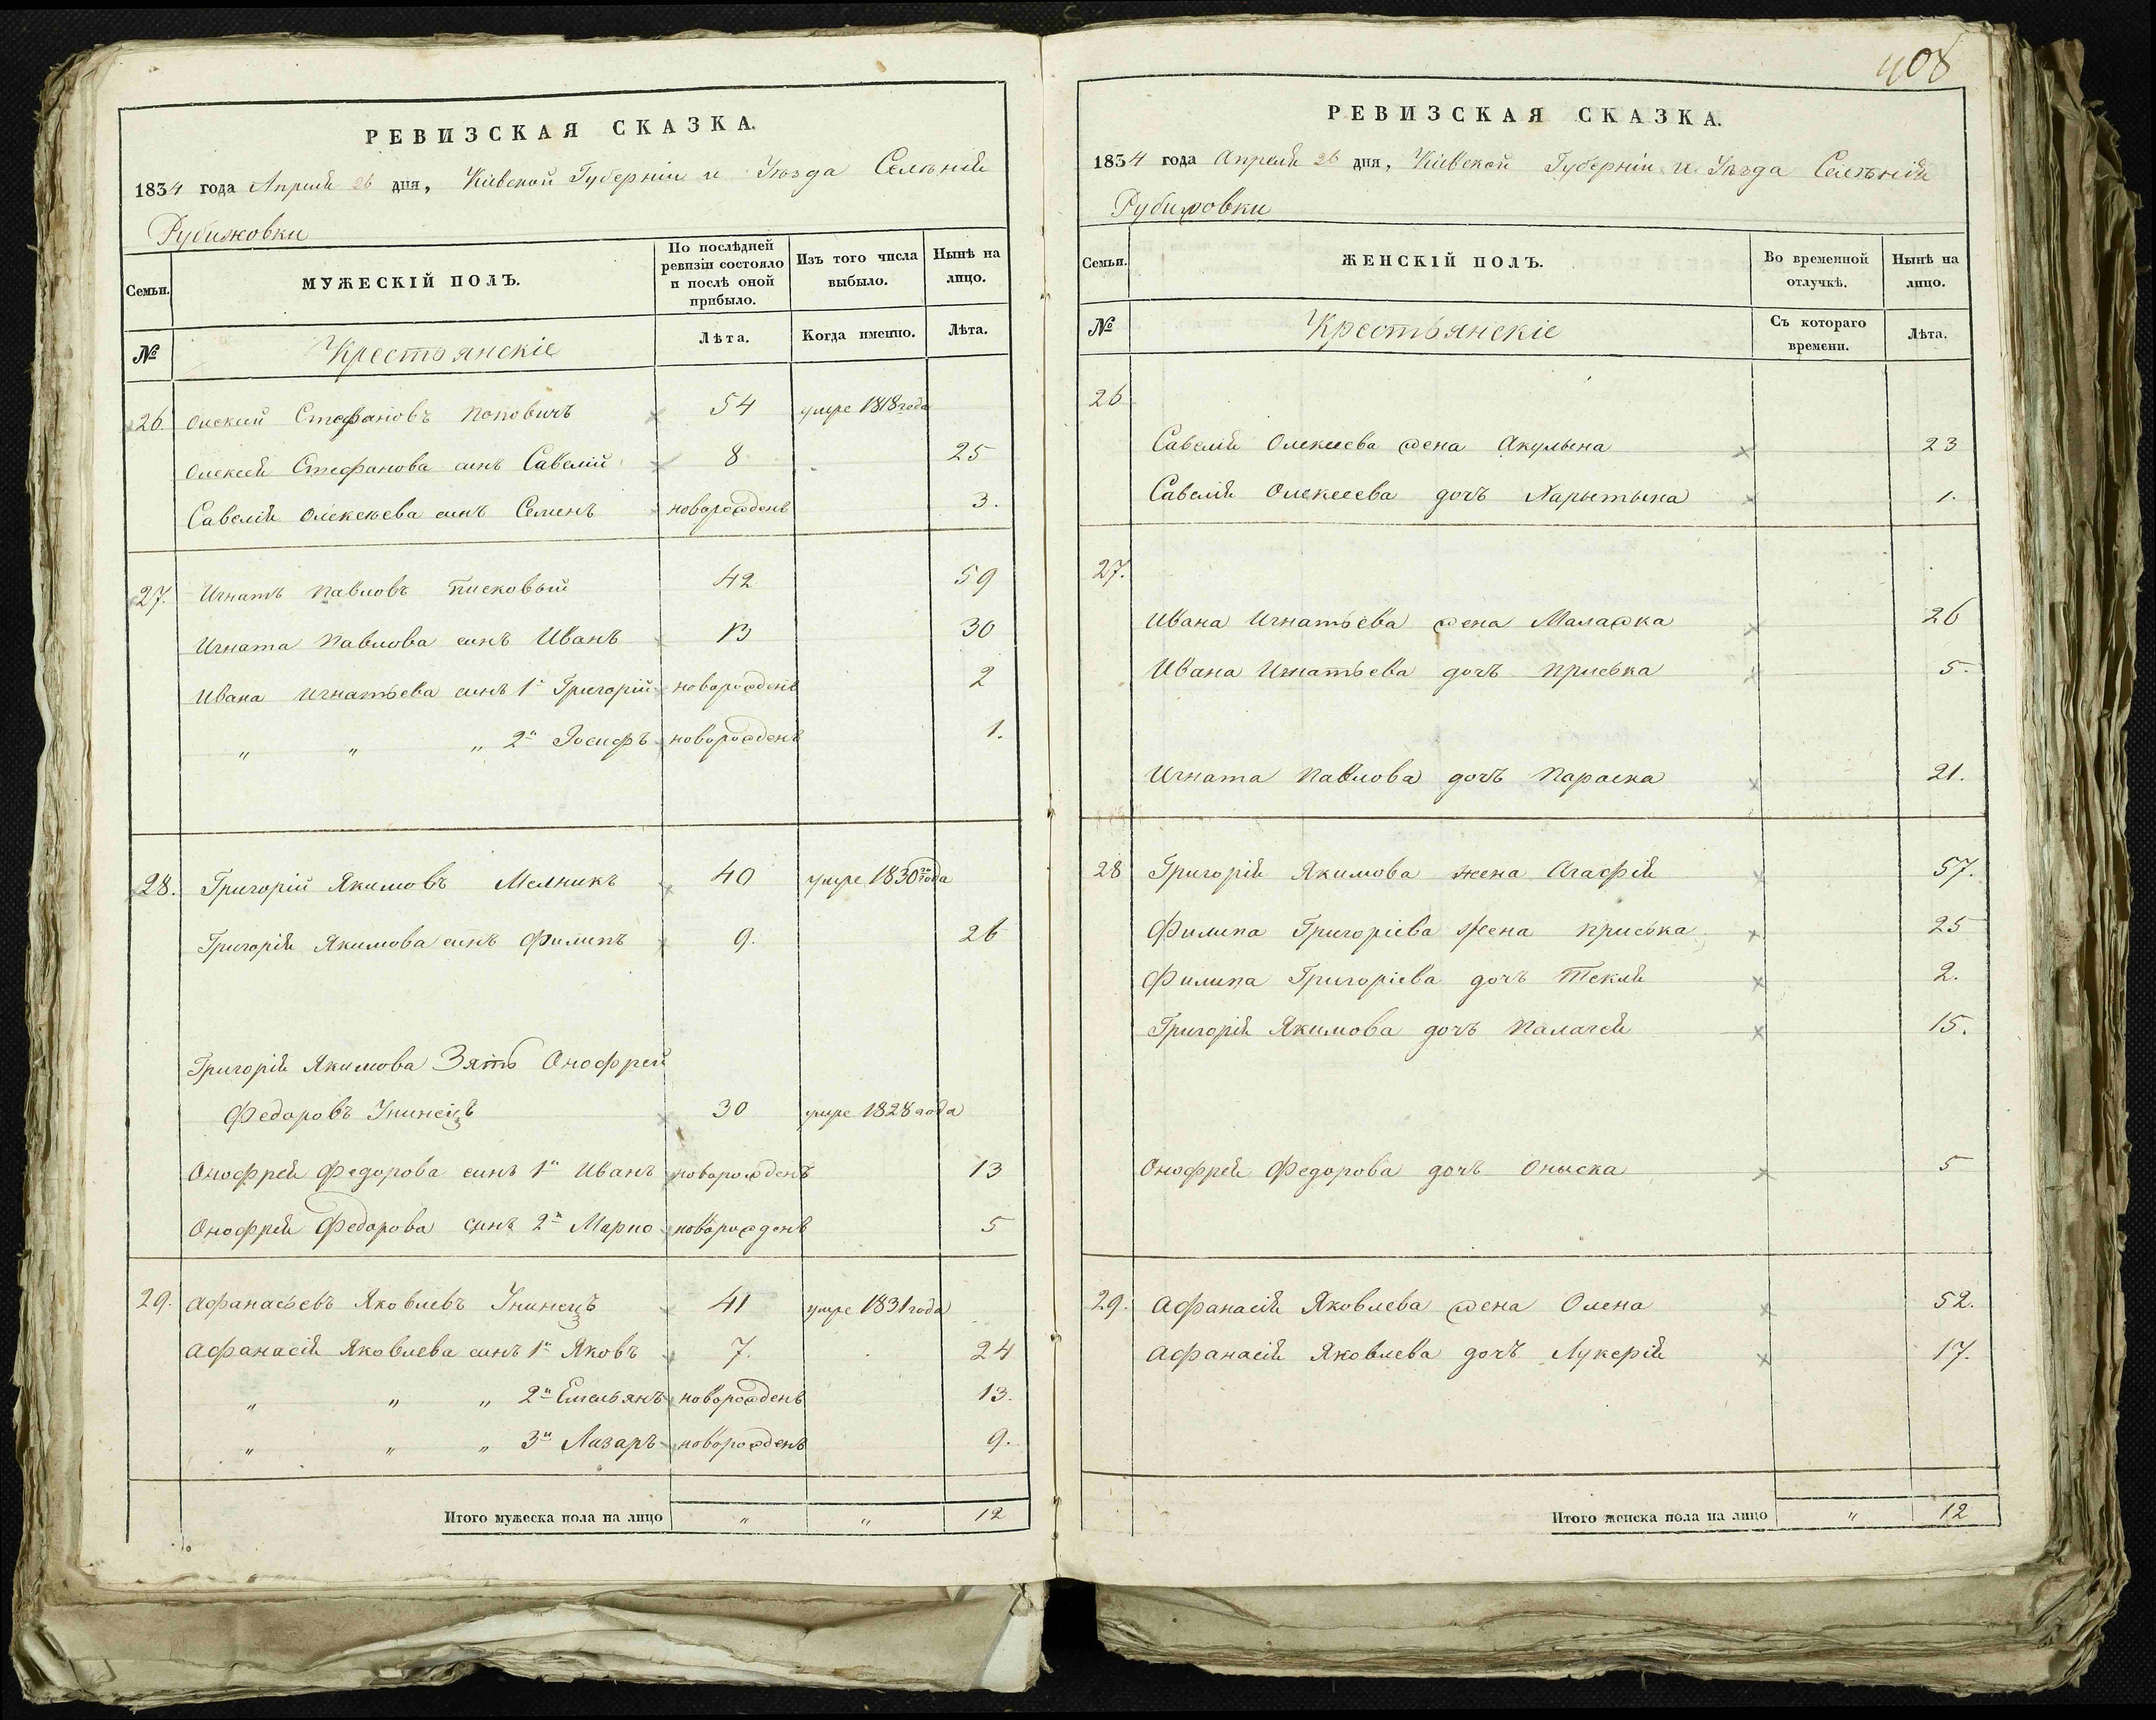 408
РЕВИЗСКАЯ СКАЗКА.
1834 года Апреля 26 дня, Кіевской Губерніи и Уѣзда Селѣнія
Рубижовки
Семьи.
МУЖЕСКІЙ ПОЛЪ.
По послѣдней ревизіи состояло и послѣ оной прибыло.
Изъ того числа выбыло.
Нынѣ на лицо.
№
Крестьянскіе
Лѣта.
Когда именно.
Лѣта.
26. Олексій Стефановъ Поповичъ 54 умре 1818 года
Олексея Стефанова синъ Савелій 8 25
Савелія Олексѣева синъ Семенъ новорожденъ 3.
27. Игнатъ Павловъ Писковый 42 59
Игната Павлова синъ Иванъ 13 30
Ивана Игнатьева синъ 1й Григорій новорожденъ 2
„ „ „ 2й Іосифъ новорожденъ 1.
28. Григорій Якимовъ Мелникъ 40 умре 1830го года
Григорія Якимова синъ Филипъ 9. 26
Григорія Якимова Зять Онофрей
Федоровъ Унинецъ 30 умре 1828 года
Онофрея Федорова синъ 1й Иванъ новорожденъ 13
Онофрея Федорова синъ 2й Марко новорожденъ 5
29. Афанасьевъ Яковлевъ Унинецъ 41 умре 1831 года
Афанасія Яковлева синъ 1й Яковъ 7. 24
„ „ „ 2й Емельянъ новорожденъ 13.
„ „ „ 3й Лазаръ новорожденъ 9.
Итого мужеска пола на лицо „ „ 12
РЕВИЗСКАЯ СКАЗКА.
1834 года Апреля 26 дня, Кіевской Губерніи и Уѣзда Селѣнія
Рубижовки
Семьи.
ЖЕНСКІЙ ПОЛЪ.
Во временной отлучкѣ.
Нынѣ на лицо.
№
Крестьянскіе
Съ котораго времени.
Лѣта.
26
Савелія Олексеева жена Акулына 23
Савелія Олексеева дочъ Харытына 1.
27.
Ивана Игнатьева жена Малашка 26
Ивана Игнатьева дочъ Приська 5.
Игната Павлова дочъ Параска 21.
28 Григорія Якимова жена Агафія 57.
Филипа Григоріева жена Приська 25
Филипа Григоріева дочъ Текля 2.
Григорія Якимова дочъ Палагея 15.
Онофрея Федорова дочъ Оныска 5
29. Афанасія Яковлева жена Олена 52.
Афанасія Яковлева дочъ Лукерія 17.
Итого женска пола на лицо „ 12